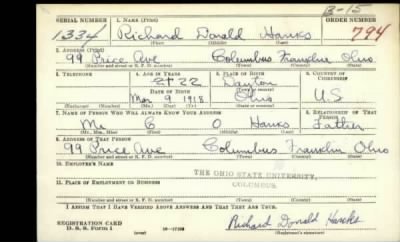 B-15
SERIAL NUMBER 1. NAME (Print) ORDER NUMBER
1334 Richard Donald Hanks 794
(First) (Middle) (Last)
2. ADDRESS (Print)
99 Price Ave Columbus Franklin Ohio
(Number and street or R. F. D. number) (Town) (County) (State)
3. TELEPHONE 4. AGE IN YEARS 5. PLACE OF BIRTH 6. COUNTRY OF CITIZENSHIP
22 Dayton
DATE OF BIRTH (Town or county)
Mar 9 1918 Ohio U S
(Exchange) (Number) (Mo.) (Day) (Yr.) (State or country)
7. NAME OF PERSON WHO WILL ALWAYS KNOW YOUR ADDRESS 8. RELATIONSHIP OF THAT PERSON
Mr C O Hanks Father
(Mr., Mrs., Miss) (First) (Middle) (Last)
9. ADDRESS OF THAT PERSON
99 Price Ave Columbus Franklin Ohio
(Number and street or R. F. D. number) (Town) (County) (State)
10. EMPLOYER'S NAME
THE OHIO STATE UNIVERSITY,
11. PLACE OF EMPLOYMENT OR BUSINESS
COLUMBUS.
(Number and street or R. F. D. number) (Town) (County) (State)
I AFFIRM THAT I HAVE VERIFIED ABOVE ANSWERS AND THAT THEY ARE TRUE.
REGISTRATION CARD Richard Donald Hanks
D. S. S. Form 1 (over) (Registrant's signature)